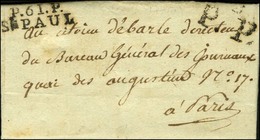 P. 61. P.
ST PAUL
P. P.
Au citoien debarle directeur
du Bureau Général des Journaux
quai des augustins N.º 17.
a Paris